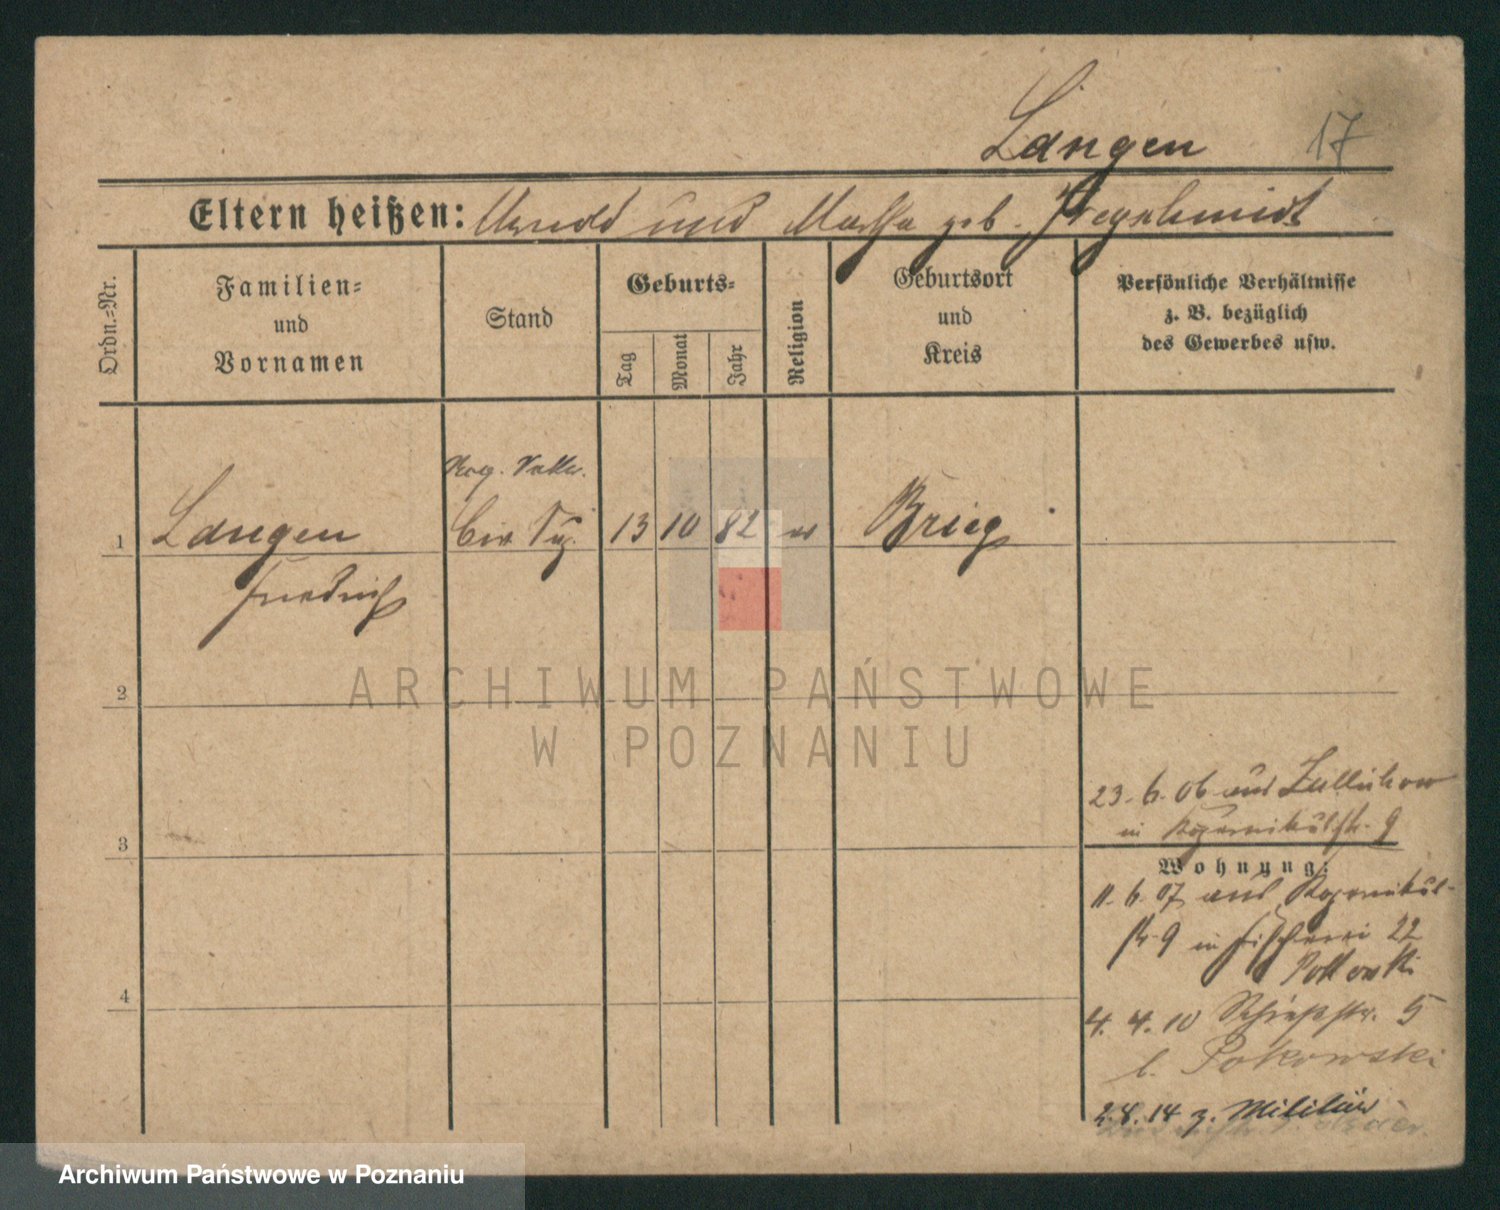 Langen 17
Eltern heißen: Arnold und Martha geb.
Ordn.-Nr.
Familien-
und
Vornamen
Stand
Geburts-
Tag
Monat
Jahr
Religion
Geburtsort
und
Kreis
Persönliche Verhältnisse
z. B. bezüglich
des Gewerbes usw.
1 Langen 13 10 82 ev Brieg
Friedrich
2
ARCHIWUM PAŃSTWOWE
W POZNANIU
23. 6. 06 aus Züllichow
in Kopernikusstr. 9
3
Wohnung:
11. 6. 07 aus Kopernikus-
str. 9 in Fischerei 22
4
4. 4. 10 Schießstr. 5
b. Pokowski
2.8.14 z. Militär
Archiwum Państwowe w Poznaniu